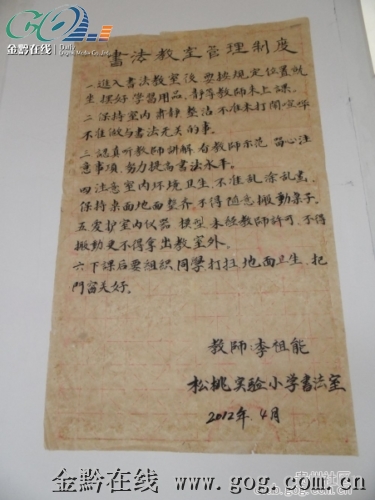 金黔在线
Daily
書法教室管理制度
一進入書法教室後 要按規定位置就
坐 摆好 学習用品, 静等教師来上課。
二保持室内肃静 整洁 不准未打闹喧哗
不准做与書法无关的事。
三認真听教師講解 看教師示范 留心注
意事項,努力提高書法水平。
四注意室内环境卫生,不准乱涂乱画,
保持桌面地面整齐,不得随意搬動桌子。
五爱护室内仪器 模型 未经教師許可,不得
搬動更不得拿出教室外。
六下課后要组织同學打扫地面卫生 把
門窗关好。
教師:李祖能
松桃实验小学書法室
2012年 4月
金黔在线 www.gog.com.cn